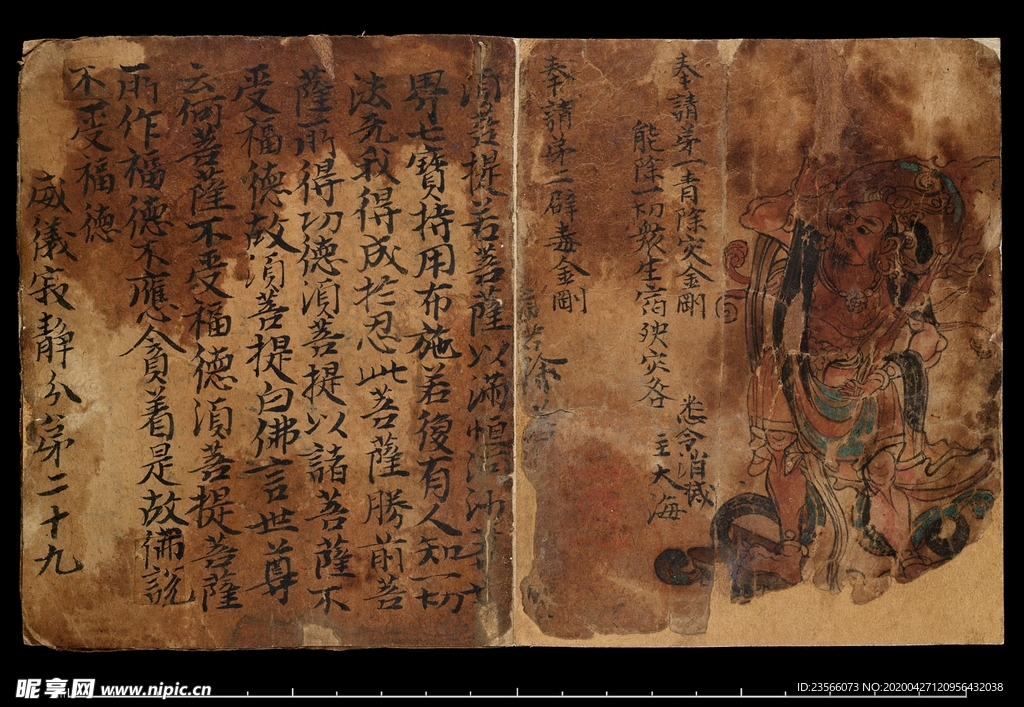 奉請第一青除灾金剛
能除一切衆生宿殃灾各
悉令消滅
主大海
奉請第二辟毒金剛
須菩提若菩薩以滿恒沙
界七寶持用布施若復有人知一切
法无我得成扵忍此菩薩勝前菩
薩所得功德須菩提以諸菩薩不
受福德故須菩提白佛言世尊
云何菩薩不受福德須菩提菩薩
所作福德不應貪着是故佛説
不受福德
威儀寂静分苐二十九
昵享网 www.nipic.cn
ID:23566073 NO:20200427120956432038